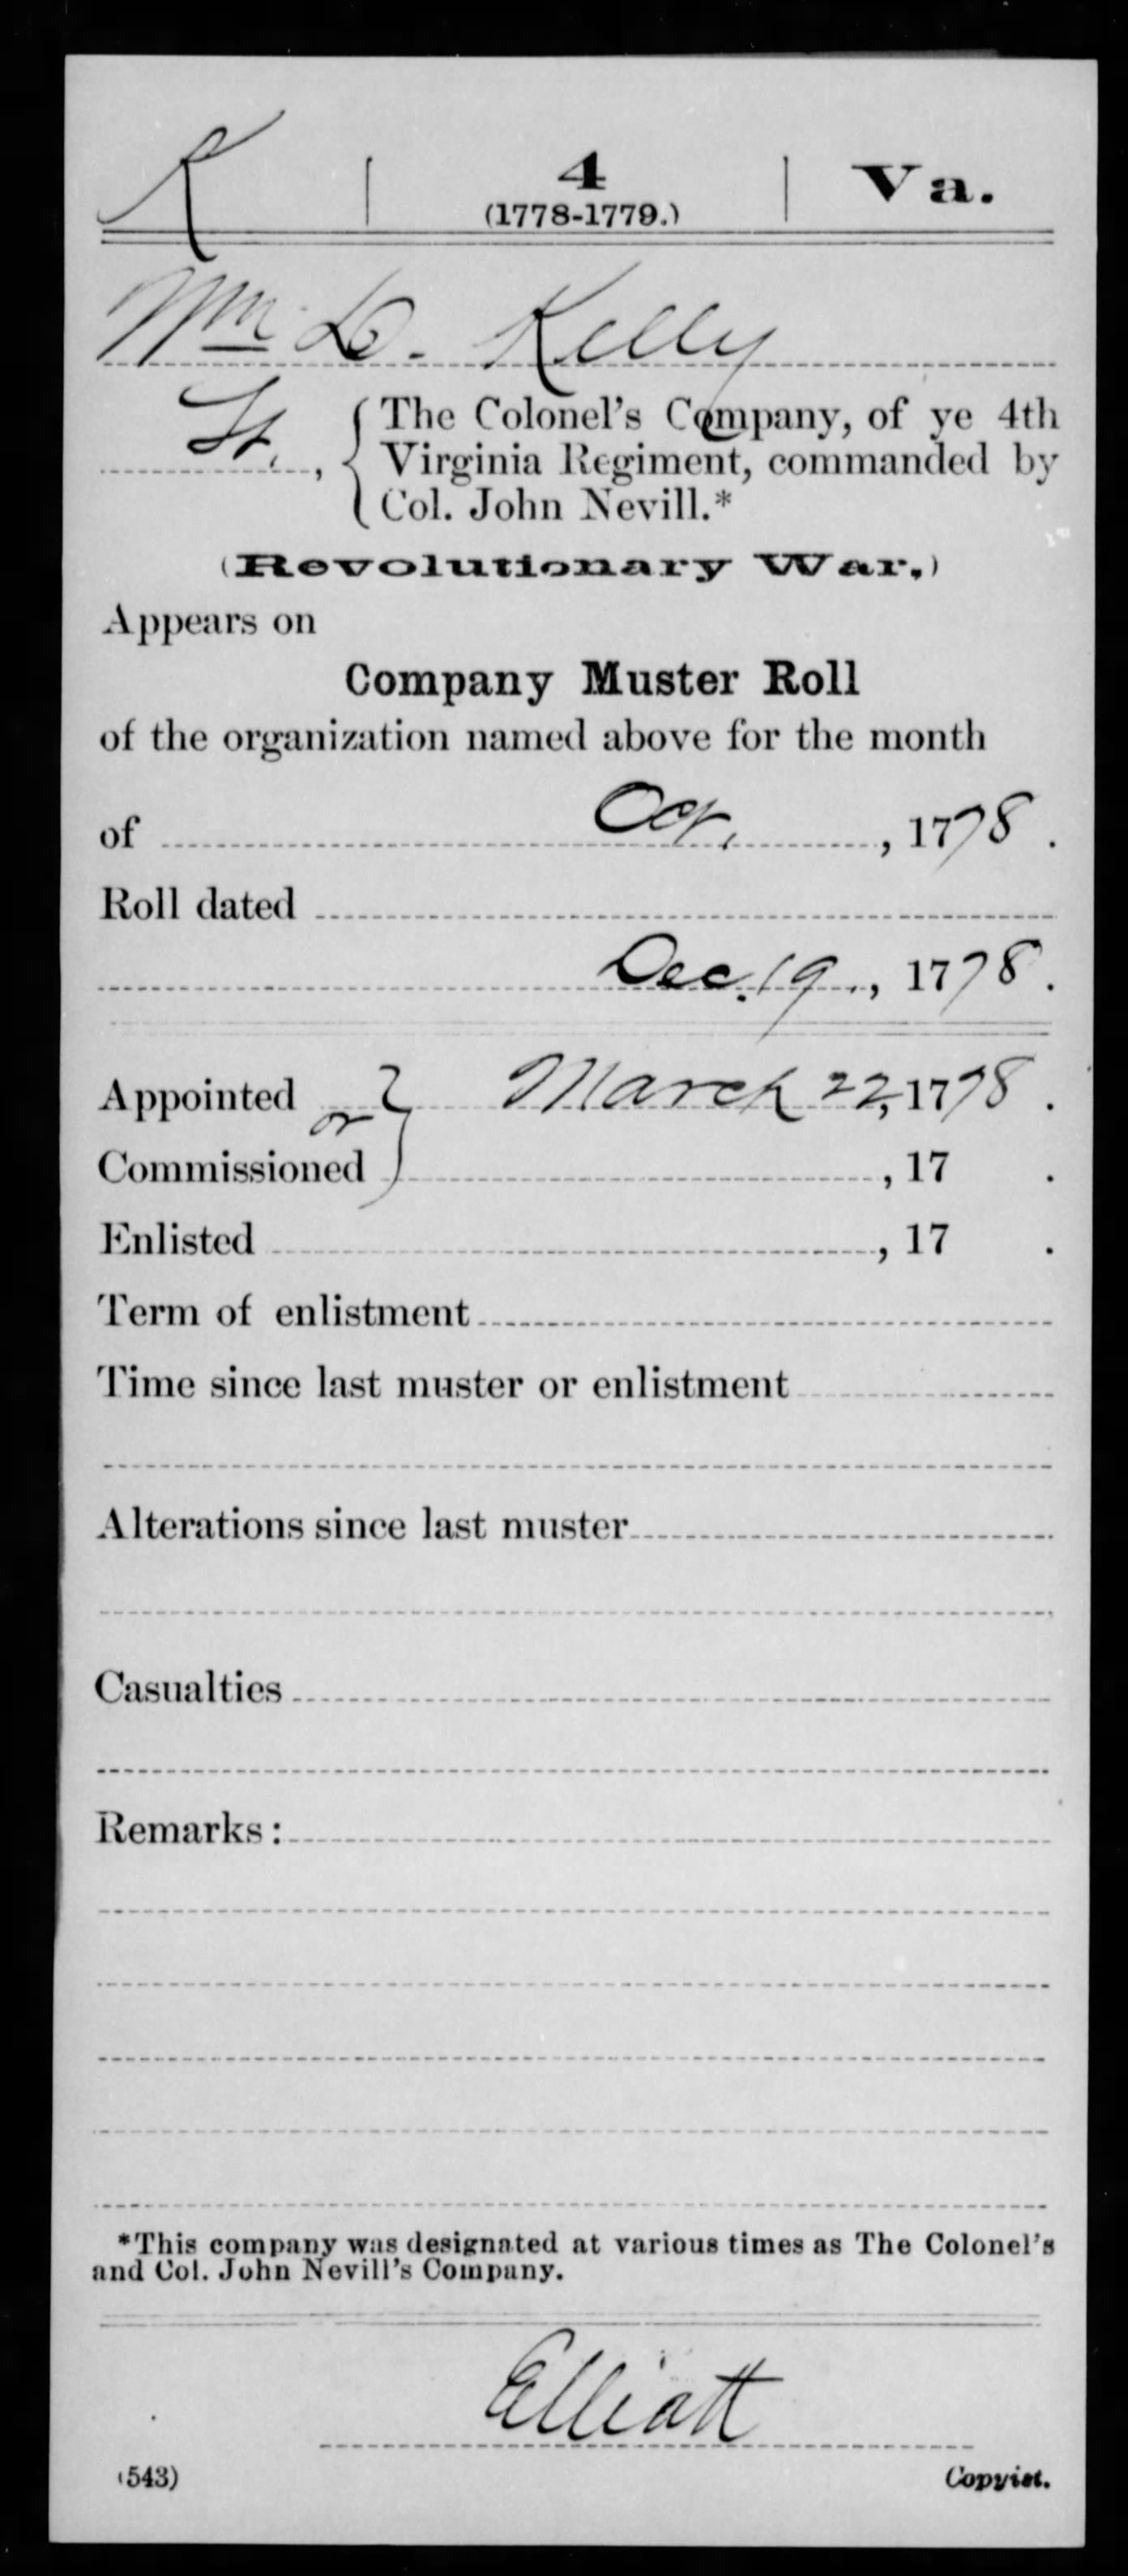 K | 4 | Va.
(1778-1779.)
Wm D. Kelly
Lt., { The Colonel's Company, of ye 4th
Virginia Regiment, commanded by
Col. John Nevill.*
(Revolutionary War.)
Appears on
Company Muster Roll
of the organization named above for the month
of Oct., 1778.
Roll dated
Dec. 19, 1778.
Appointed or } March 22, 1778.
Commissioned , 17 .
Enlisted , 17 .
Term of enlistment
Time since last muster or enlistment
Alterations since last muster
Casualties
Remarks:
*This company was designated at various times as The Colonel's
and Col. John Nevill's Company.
Elliott
(543) Copyist.